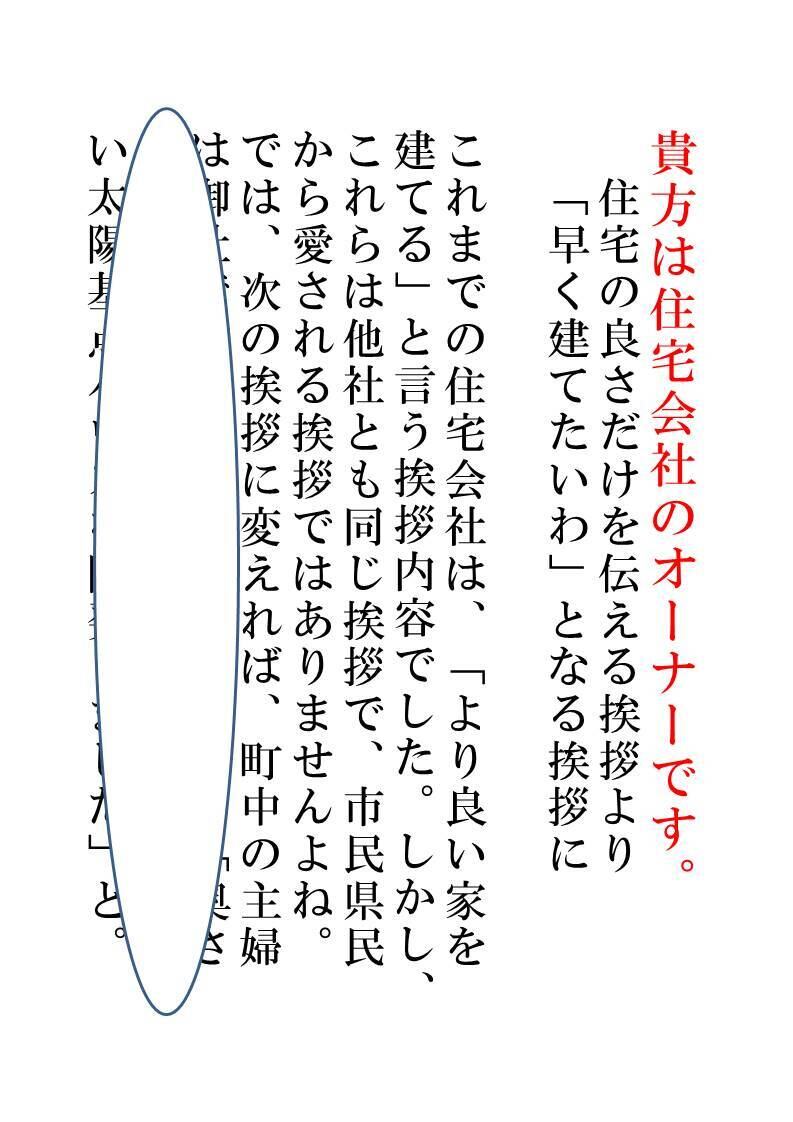 貴方は住宅会社のオーナーです。
住宅の良さだけを伝える挨拶より
「早く建てたいわ」となる挨拶に
これまでの住宅会社は、「より良い家を
建てる」と言う挨拶内容でした。しかし、
これらは他社とも同じ挨拶で、市民県民
から愛される挨拶ではありませんよね。
では、次の挨拶に変えれば、町中の主婦
は御社
「奥さ
い太陽基
」と。